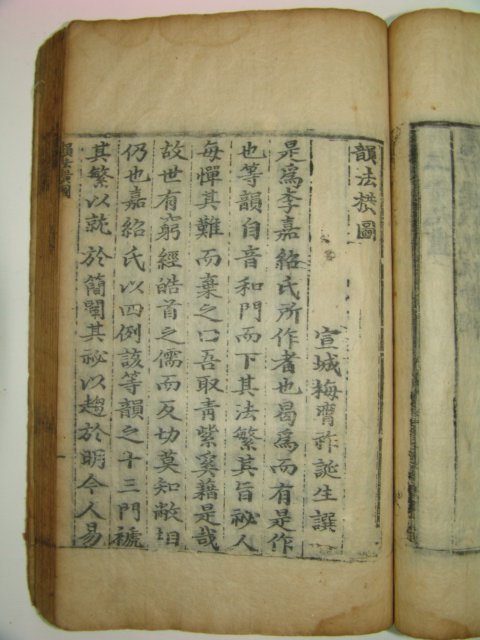 韻法横圖
宣城梅膺祚誕生譔
是爲李嘉紹氏所作者也曷爲而有是作
也等韻自音和門而下其法繁其旨祕人
每憚其難而棄之曰吾取青紫奚藉是哉
故世有窮經皓首之儒而反切莫知敝相
仍也嘉紹氏以四例該等韻之十三門褫
其繁以就於簡闡其祕以趨於明令人易
韻法横圖